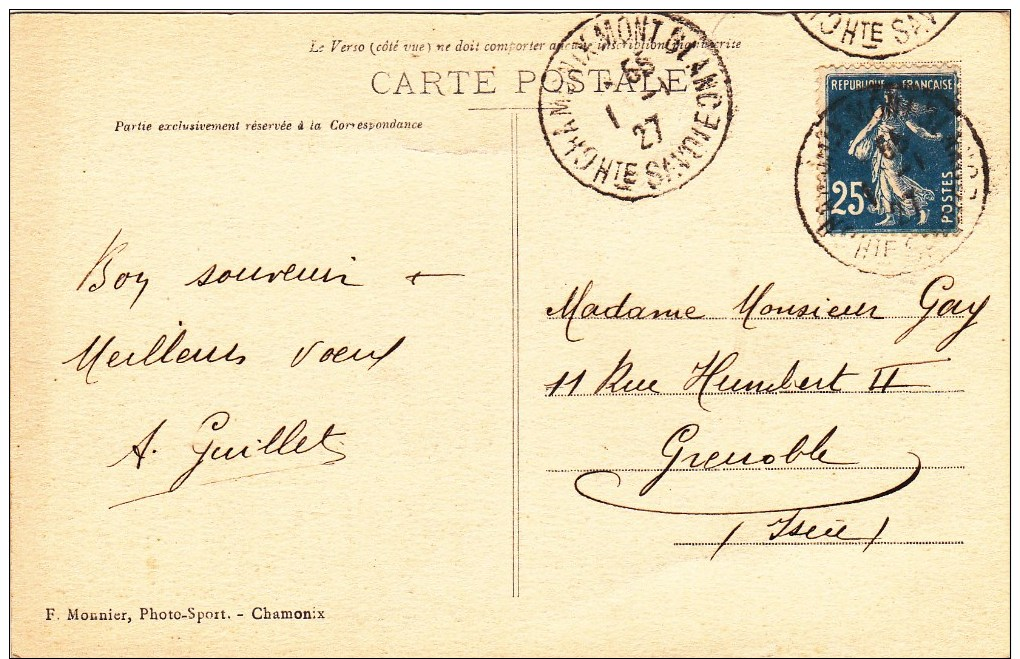 Le Verso (côté vue) ne doit comporter aucune inscription manuscrite
CARTE POSTALE
Partie exclusivement réservée à la Correspondance
CHAMONIX MONT BLANC
1 - 1
27
HTE SAVOIE
HTE SAVOIE
REPUBLIQUE FRANÇAISE
25
POSTES
HTE SA
Bon souvenir +
Meilleurs voeux
A. Guillet
Madame Monsieur Gay
11 Rue Humbert II
Grenoble
(Isère)
F. Monnier, Photo-Sport. - Chamonix